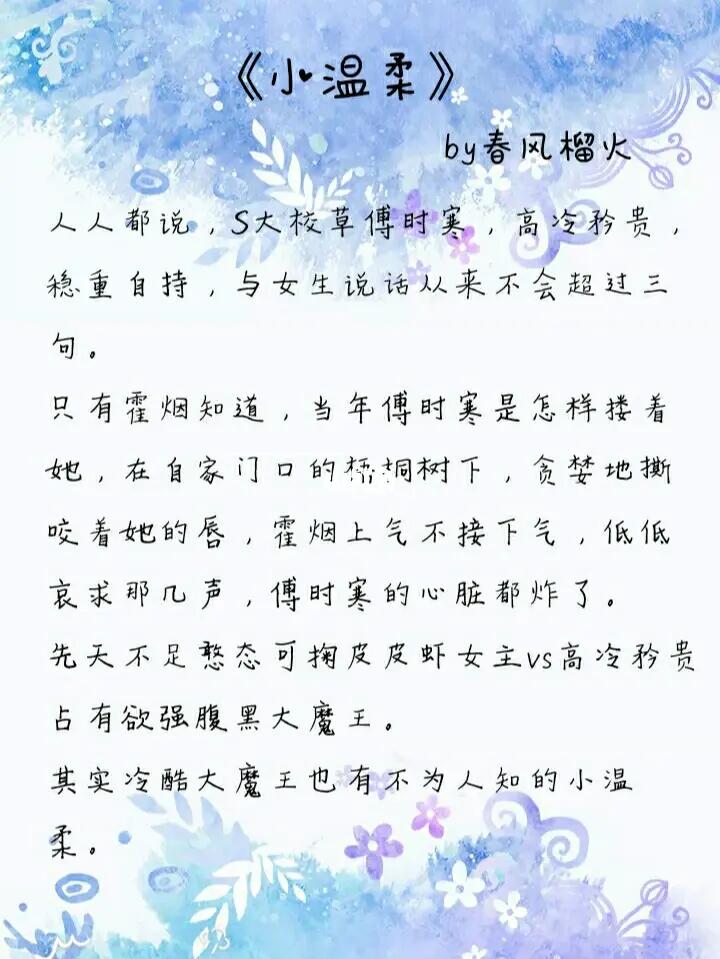 《小温柔》
by春风榴火
人人都说，S大校草傅时寒，高冷矜贵，
稳重自持，与女生说话从来不会超过三
句。
只有霍烟知道，当年傅时寒是怎样搂着
她，在自家门口的梧桐树下，贪婪地撕
咬着她的唇，霍烟上气不接下气，低低
哀求那几声，傅时寒的心脏都炸了。
先天不足憨态可掬皮皮虾女主vs高冷矜贵
占有欲强腹黑大魔王。
其实冷酷大魔王也有不为人知的小温
柔。